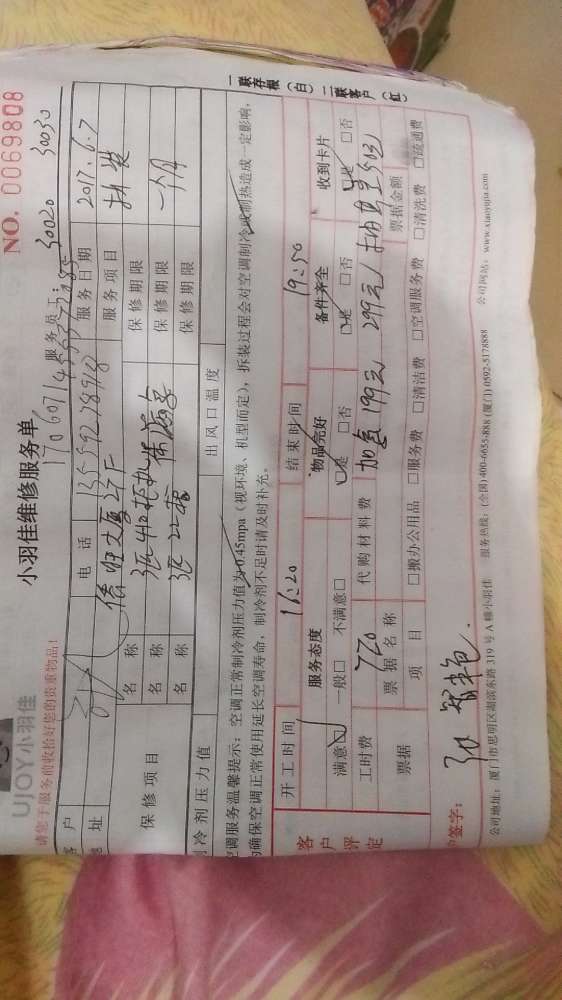 UJOY小羽佳
小羽佳维修服务单
NO. 0069808
请您于服务前收拾好您的贵重物品!
服务员工: 30020 30050
客户 电话 13559278918 服务日期 2017.6.7
地址 服务项目 拆装
保修项目 名称 保修期限
名称 保修期限 一个月
名称 保修期限
制冷剂压力值 出风口温度
空调服务温馨提示: 空调正常制冷剂压力值为0.45mpa(视环境、机型而定), 拆装过程会对空调制冷或制热造成一定影响,
为确保空调正常使用延长空调寿命, 制冷剂不足时请及时补充。
一联存根(白) 二联客户(红)
开工时间 16:20 结束时间 19:50
客户评定 服务态度 物品完好 备件齐全 收到卡片
满意☑ 一般□ 不满意□ ☑是 □否 ☑是 □否 ☑是 □否
工时费 720 代购材料费 加氢 199元 299元
票据 票据名称 票据金额
项目 □搬办公用品 □服务费 □清洁费 □空调服务费 □清洗费 □疏通费
户签字:
公司地址: 厦门市思明区湖滨东路 319 号 A 幢小羽佳 服务热线: (全国) 400-4655-888 (厦门) 0592-5178888 公司网站: www.xiaoyujia.com